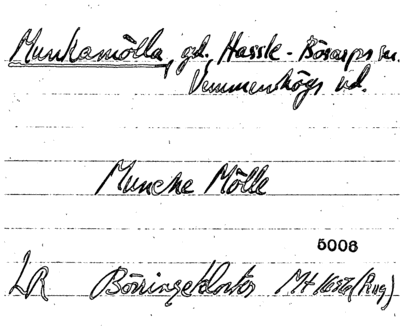 Munkamölla, gd. Hassle-Bösarps sn.
Vemmenhögs hd.
Munche Mölle
5006
LR Börringekloster Mt